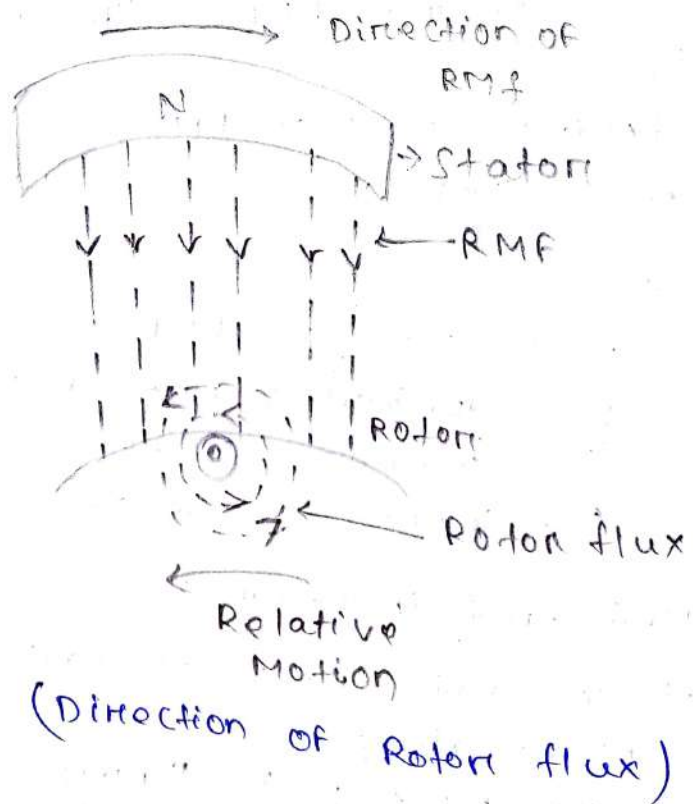 Direction of
RMf
N
Stator
RMF
Rotor
Rotor flux
Relative
Motion
(Direction of Rotor flux)